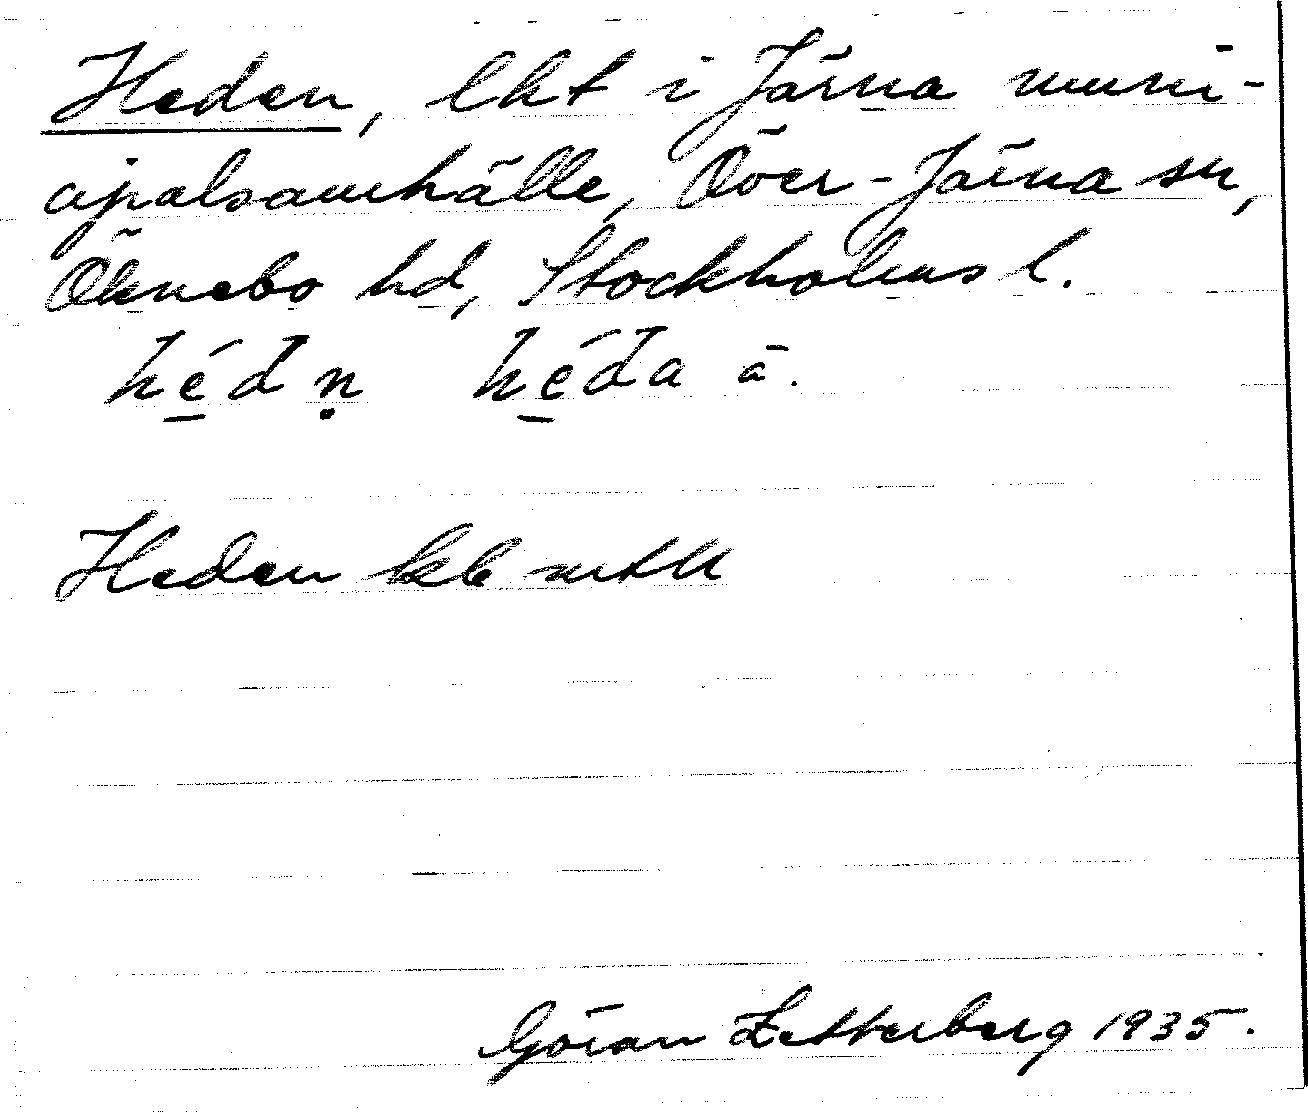 Heden, lht i Järna muni-
cipalsamhälle, Över-Järna sn,
Öknebo hd, Stockholms l.
hé̱dṇ hé̱da ā.
Heden kb
Göran Zetterberg 1935.